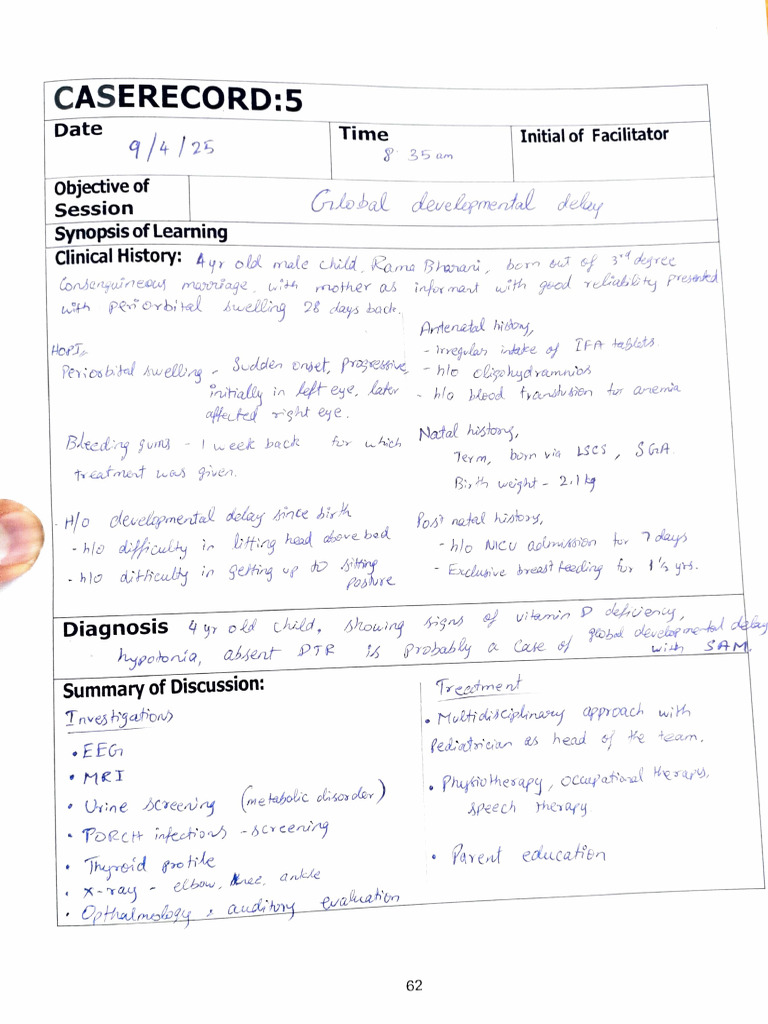 CASERECORD:5
Date
9/4/25
Time
8:35am
Initial of Facilitator
Objective of Session
Global developmental delay
Synopsis of Learning
Clinical History: 4yr old male child, Rama Bharani, born out of 3rd degree
Consenguineous marriage, with mother as informant with good reliability presented
with periorbital swelling 28 days back.
HOPI,
Periorbital swelling - Sudden onset, progressive,
initially in left eye, later
affected right eye.
Bleeding gums - 1 week back for which
treatment was given.
H/o developmental delay since birth
- h/o difficulty in lifting head above bed
- h/o difficulty in getting up to sitting
posture
Antenatal history,
- irregular intake of IFA tablets.
- h/o oligohydramnios
- h/o blood transfusion for anemia
Natal history,
Term, born via LSCS, SGA.
Birth weight - 2.1kg
Post natal history,
- h/o NICU admission for 7 days
- Exclusive breast feeding for 1½ yrs.
Diagnosis 4 yr old child, showing signs of vitamin D deficiency,
hypotonia, absent DTR is probably a case of global developmental delay
with SAM.
Summary of Discussion:
Investigations
• EEG
• MRI
• Urine screening (metabolic disorder)
• TORCH infections - screening
• Thyroid profile
• x-ray - elbow, knee, ankle
• Opthalmology & auditory evaluation
Treatment
• Multidisciplinary approach with
Pediatrician as head of the team.
• Physiotherapy, occupational therapy,
speech therapy
• Parent education
62